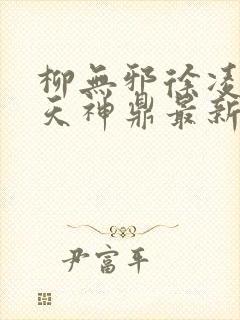 柳無邪徐凌
天神鼎最新
尹富平